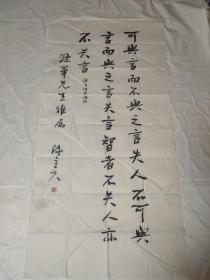 可与言而不与之言失人不可与
言而与之言失言智者不失人亦
不失言
先生雅属